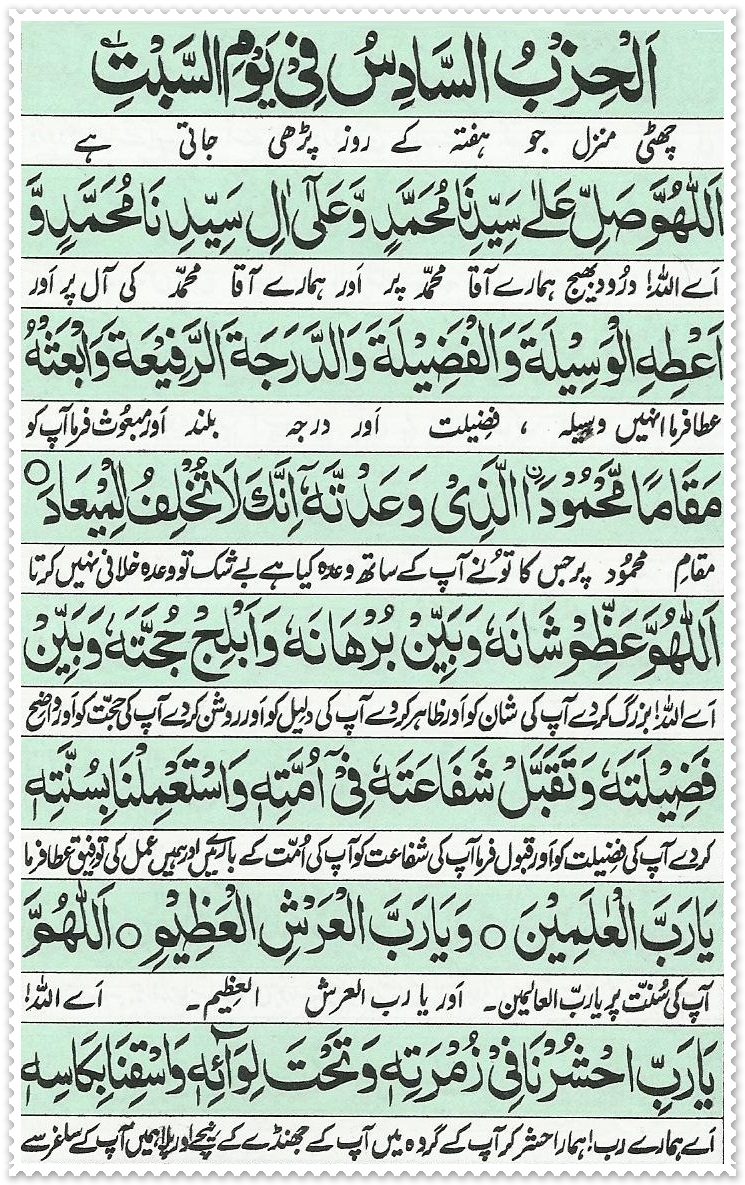 اَلْحِزْبُ السَّادِسُ فِیْ یَوْمِ السَّبْتِ
چھٹی منزل جو ہفتہ کے روز پڑھی جاتی ہے
اَللّٰهُمَّ صَلِّ عَلٰی سَیِّدِنَا مُحَمَّدٍ وَّعَلٰٓی اٰلِ سَیِّدِنَا مُحَمَّدٍ وَّ
اَے اللہ! درُود بھیج ہمارے آقا محمّد پر اَور ہمارے آقا محمّد کی آل پر اَور
اَعْطِهِ الْوَسِیْلَةَ وَالْفَضِیْلَةَ وَالدَّرَجَةَ الرَّفِیْعَةَ وَابْعَثْهُ
عطا فرما انہیں وسیلہ ، فضیلت اَور درجہ بلند اَور مبعُوث فرما آپ کو
مَقَامًا مَّحْمُوْدَاۨ الَّذِیْ وَعَدْتَّهٗٓ اِنَّكَ لَا تُخْلِفُ الْمِیْعَادَ ○
مقامِ محمُود پر جس کا تونے آپ کے ساتھ وعدہ کیا ہے بے شک تو وعدہ خلافی نہیں کرتا
اَللّٰهُمَّ عَظِّمْ شَانَهٗ وَبَیِّنْ بُرْهَانَهٗ وَاَبْلِجْ حُجَّتَهٗ وَبَیِّنْ
اَے اللہ! بزرگ کر دے آپ کی شان کو اَور ظاہر کر دے آپ کی دلیل کو اَور روشن کر دے آپ کی حجّت کو اَور واضح
فَضِیْلَتَهٗ وَتَقَبَّلْ شَفَاعَتَهٗ فِیْٓ اُمَّتِهٖ وَاسْتَعْمِلْنَا بِسُنَّتِهٖ
کر دے آپ کی فضیلت کو اَور قبول فرما آپ کی شفاعت کو آپ کی اُمّت کے بارے میں اور ہمیں عمل کی توفیق عطا فرما
یَارَبَّ الْعٰلَمِیْنَ ○ وَیَارَبَّ الْعَرْشِ الْعَظِیْمِ ○ اَللّٰهُمَّ
آپ کی سُنّت پر یا ربّ العالمین۔ اور یا رب العرش العظیم۔ اَے اللہ!
یَارَبِّ احْشُرْنَا فِیْ زُمْرَتِهٖ وَتَحْتَ لِوَآئِهٖ وَاسْقِنَا بِكَاسِهٖ
اَے ہمارے رب! ہمارا حشر کر آپ کے گروہ میں آپ کے جھنڈے کے نیچے اور پلا ہمیں آپ کے ساغر سے